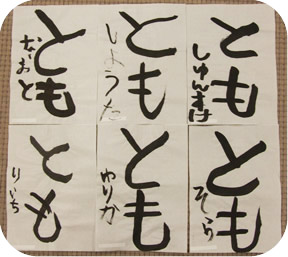 とも
なおと
とも
しようた
とも
しゅんすけ
とも
りいち
とも
ゆりか
とも
そら